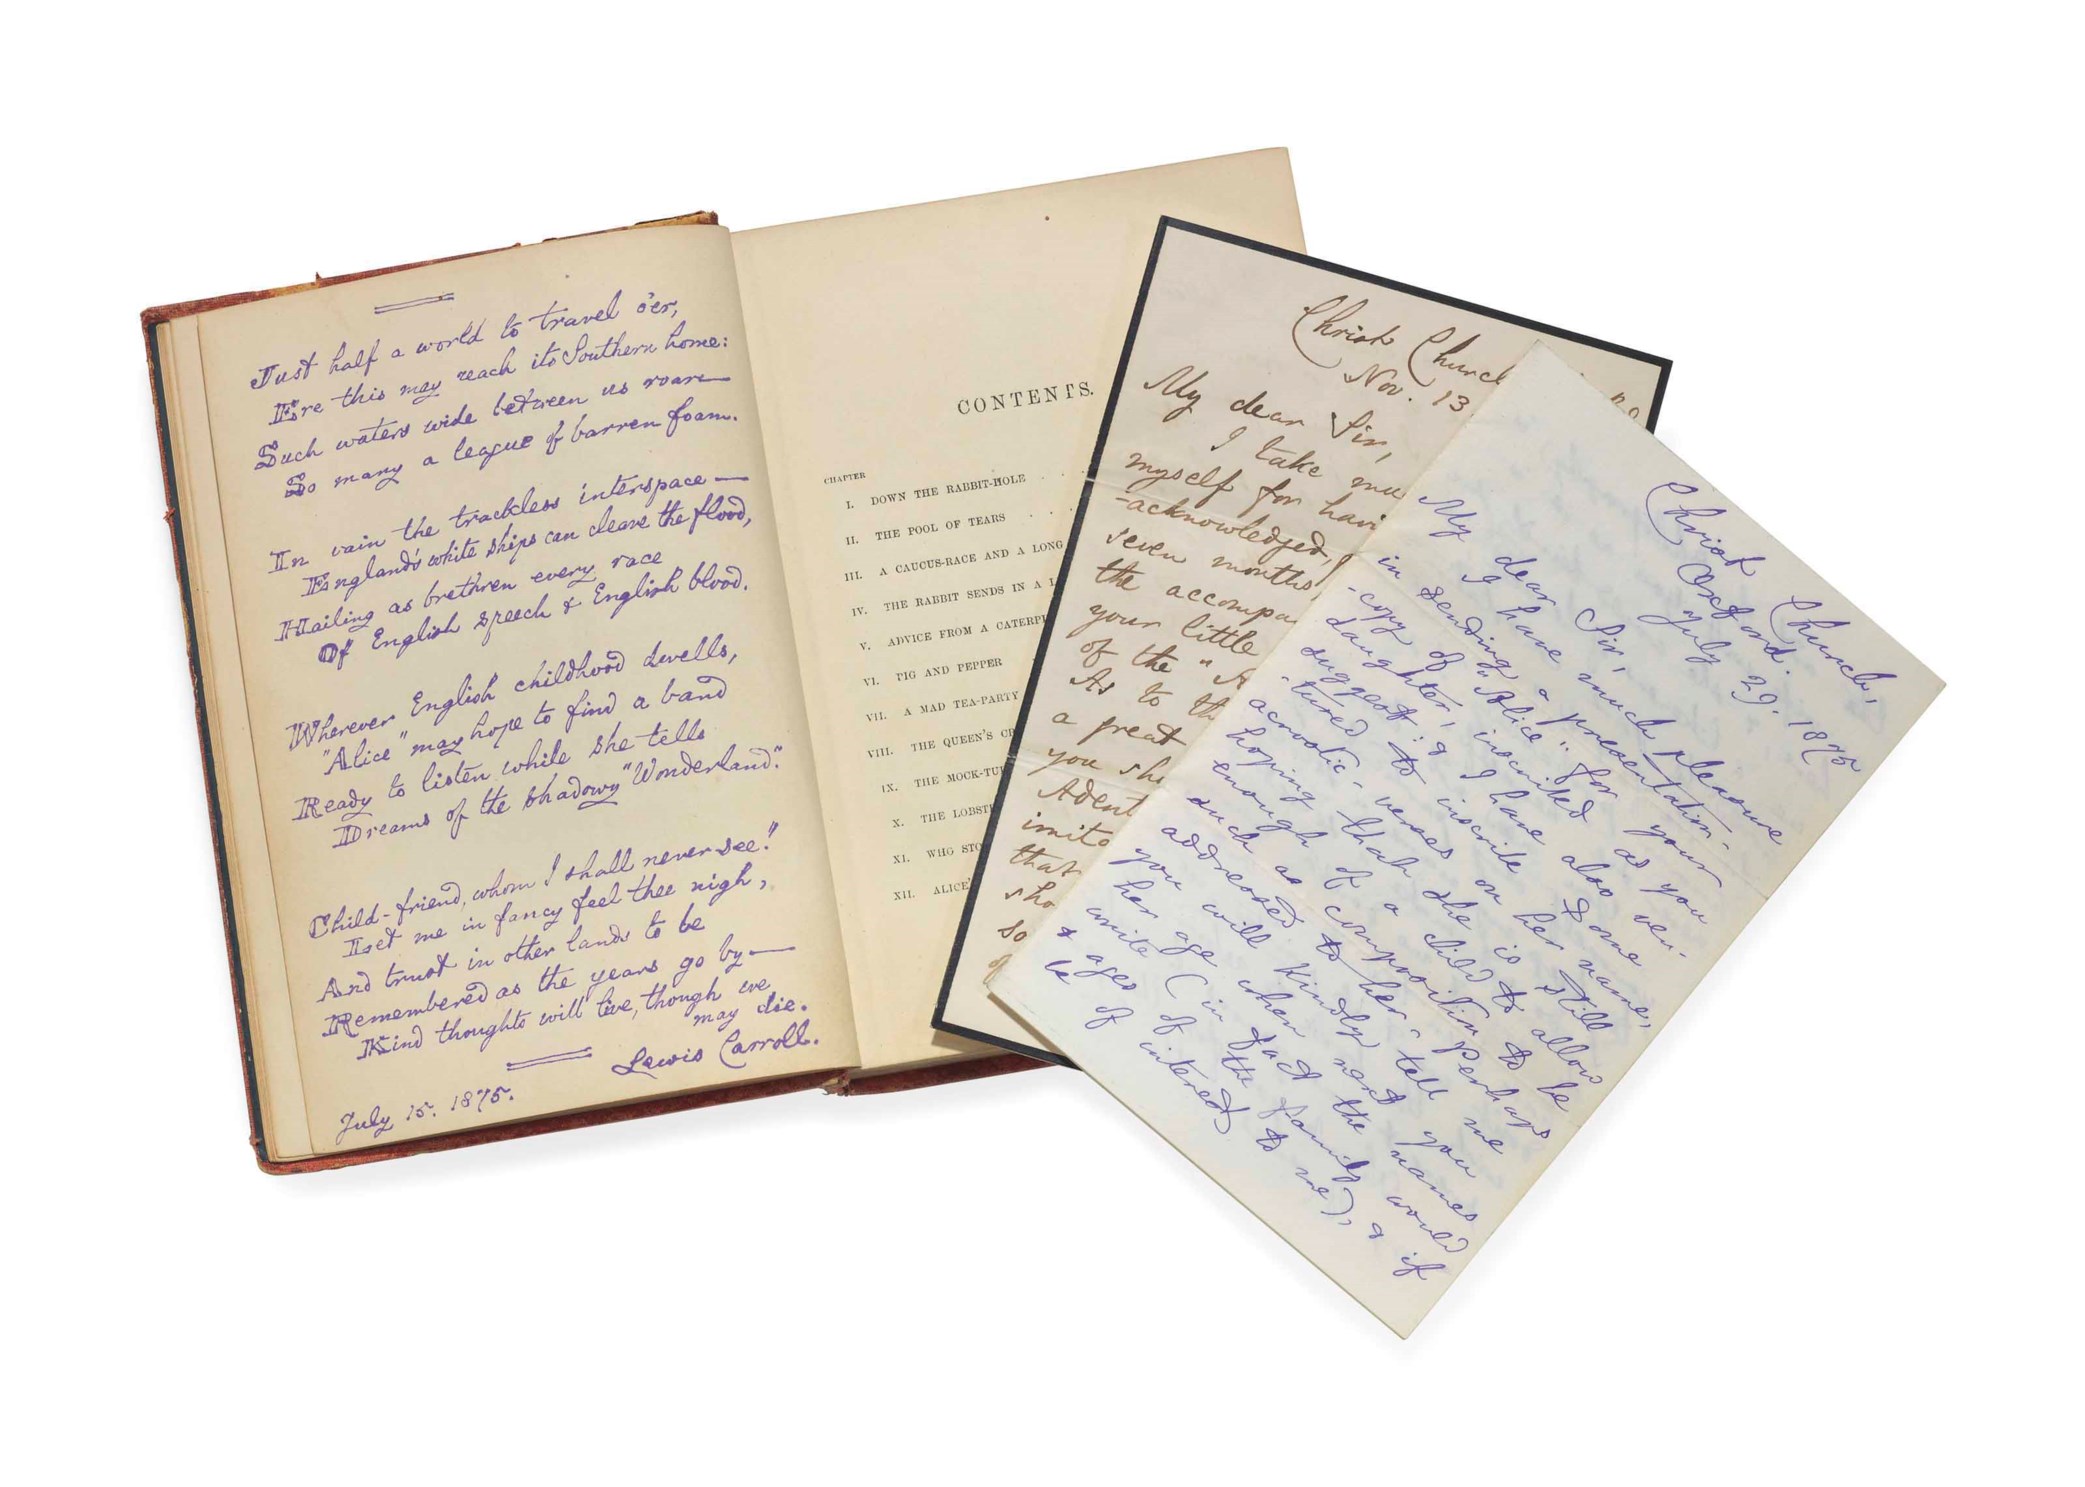 Just half a world to travel o'er,
Ere this may reach its Southern home:
Such waters wide between us roar—
So many a league of barren foam.
In vain the trackless interspace—
England's white ships can cleave the flood,
Hailing as brethren every race
Of English speech & English blood.
Wherever English childhood dwells,
"Alice" may hope to find a band
Ready to listen while she tells
Dreams of the shadowy "Wonderland."
Child-friend, whom I shall never see!"
Let me in fancy feel thee nigh,
And trust in other lands to be
Remembered as the years go by—
Kind thoughts will live, though we
may die.
Lewis Carroll.
July 15. 1875.
CONTENTS.
CHAPTER
I. DOWN THE RABBIT-HOLE
II. THE POOL OF TEARS
III. A CAUCUS-RACE AND A LONG
IV. THE RABBIT SENDS IN A L
V. ADVICE FROM A CATERPI
VI. PIG AND PEPPER
VII. A MAD TEA-PARTY
VIII. THE QUEEN'S CR
IX. THE MOCK-TU
X. THE LOBST
XI. WHO STO
XII. ALICE'
Christ Church
Nov. 13
My dear Sir,
I take
myself for havi
-acknowledged,
seven months
the accompa
your little
of the "A
As to th
a great
you sho
Adent
imita
that
sho
so
of
Christ Church,
Oxford.
July 29. 1875
My dear Sir,
I have much pleasure
in sending a presentation-
-copy of "Alice" for your
daughter, inscribed as you
suggest: & I have also ven-
-tured to inscribe some
acrostic-verses on her name,
hoping that she is still
enough of a child to allow
such a composition to be
addressed to her. Perhaps
you will kindly tell me
her age when next you
write (in fact the names
& ages of the family would
be of interest to me), & if